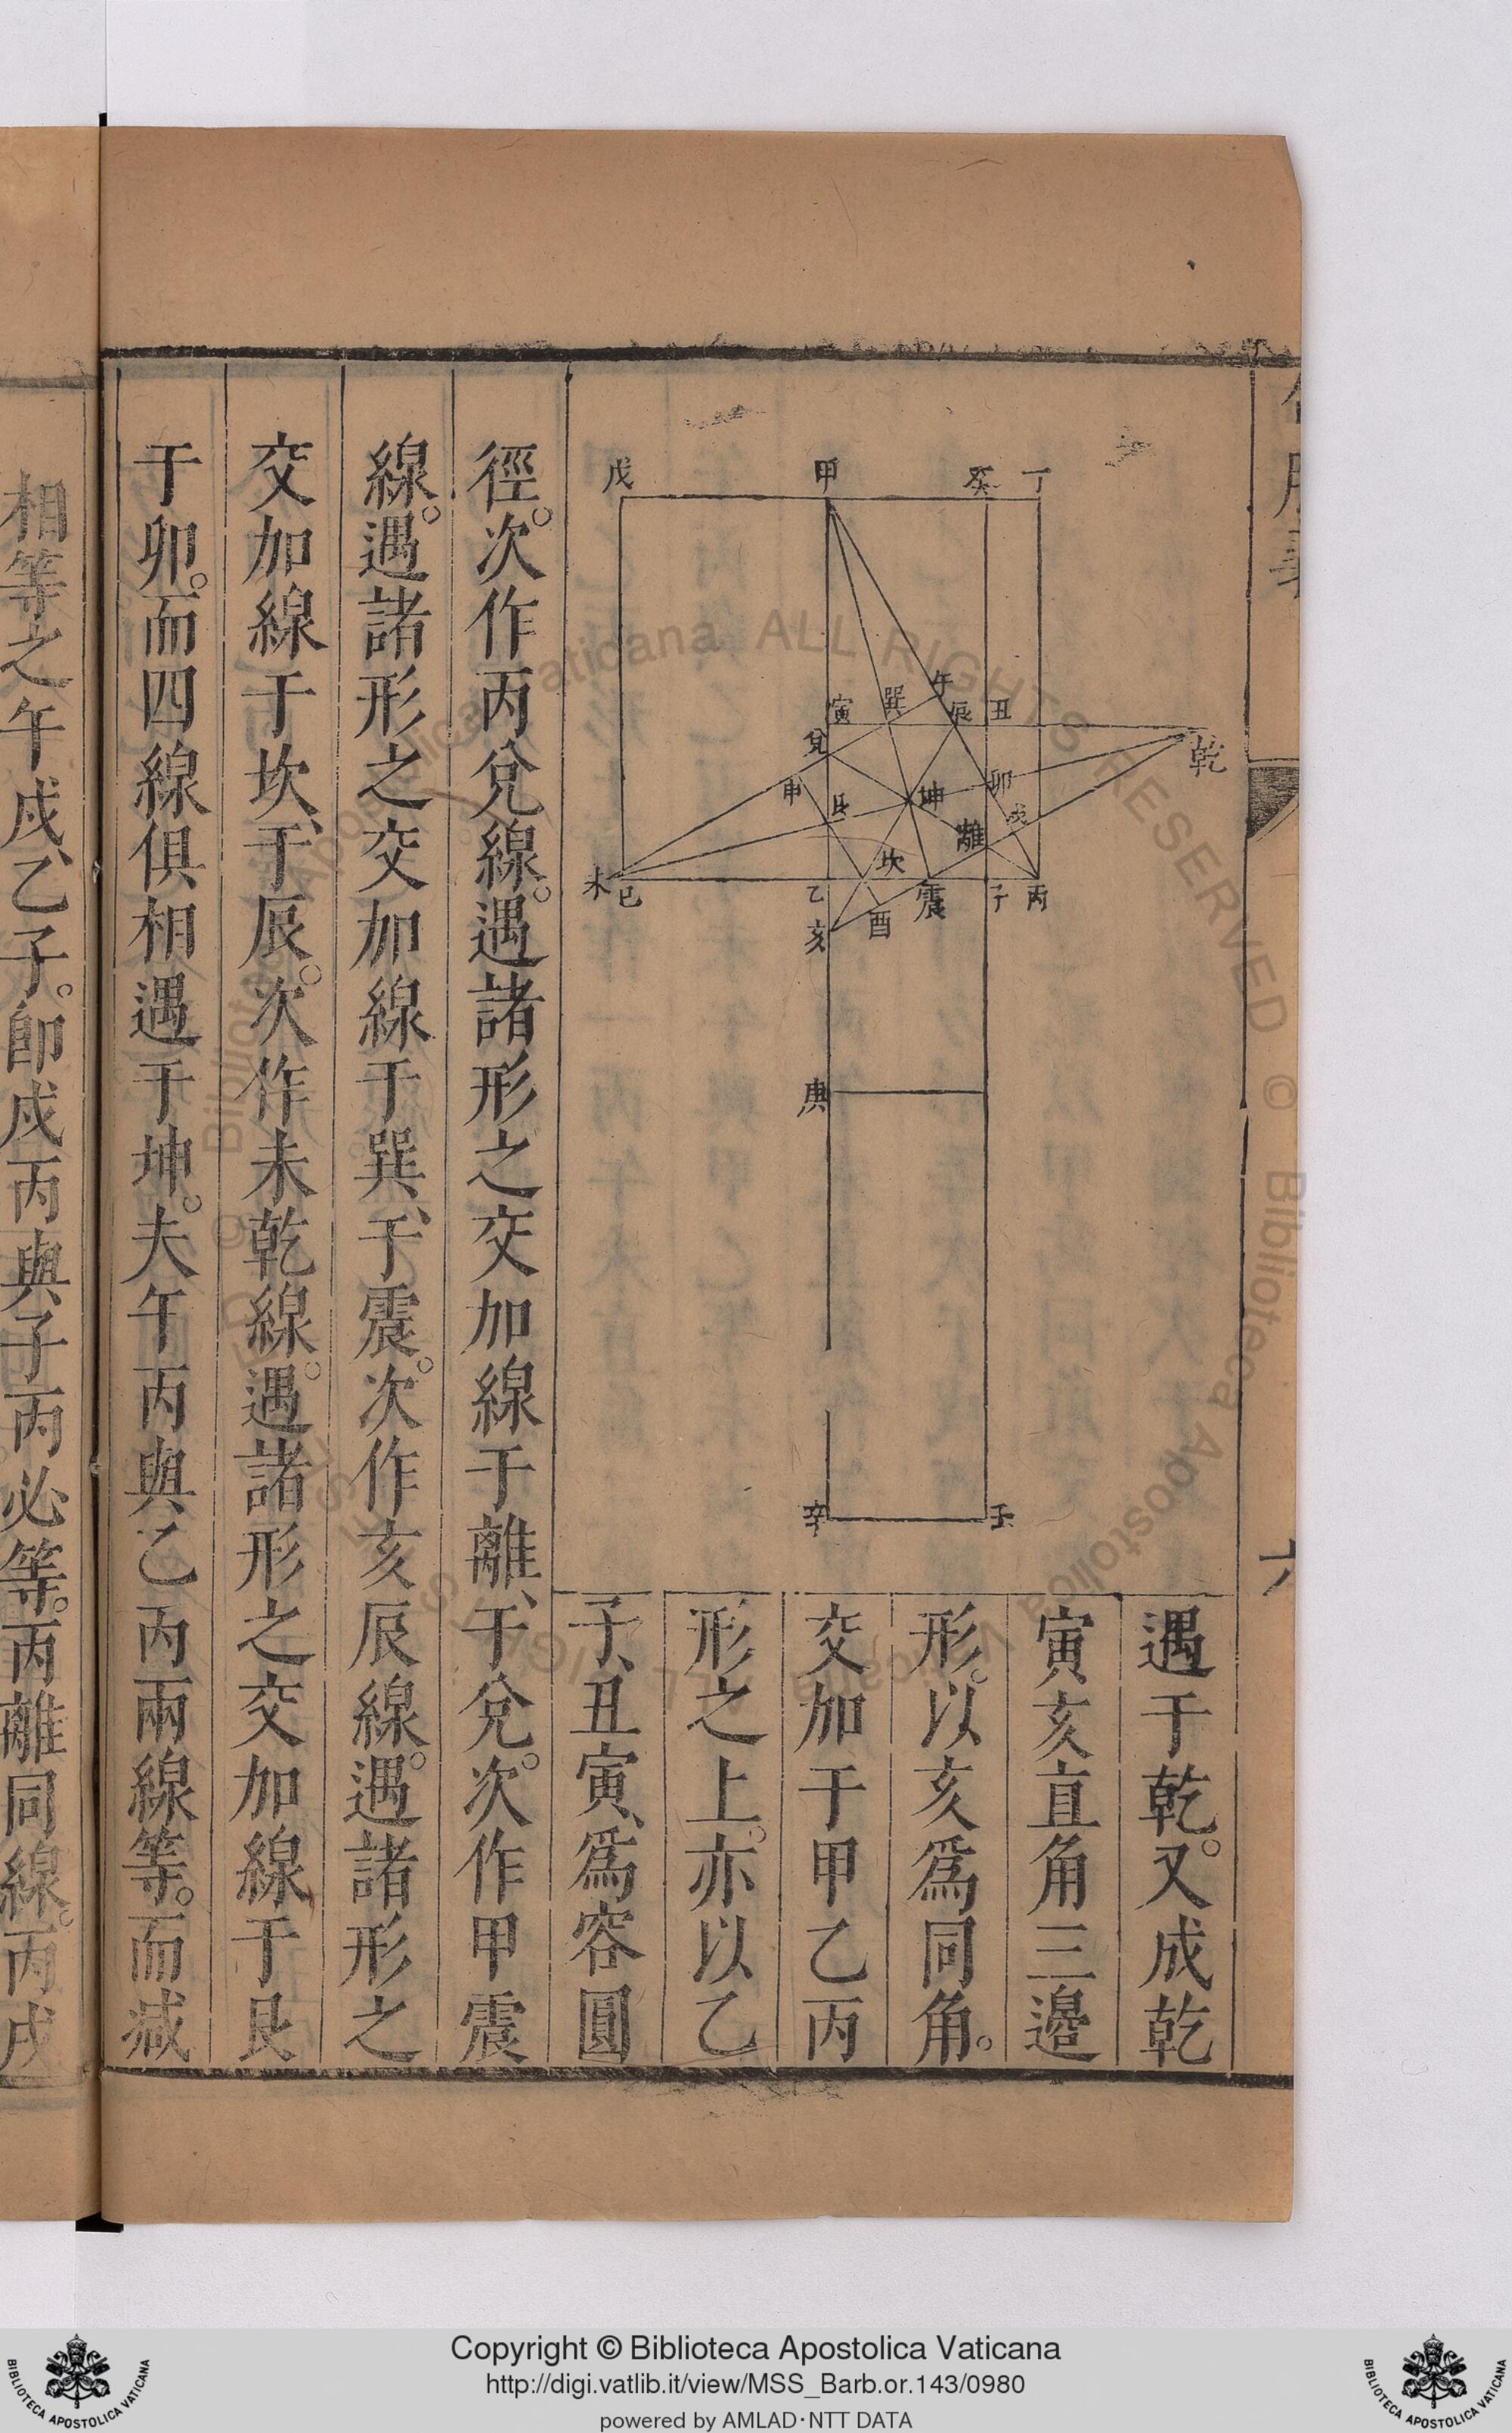 遇于乾。又成乾
寅亥直角三邊
形。以亥爲同角。
交加于甲乙丙
形之上。亦以乙
子、丑寅、爲容圓
徑。次作丙兌線。遇諸形之交加線于離、于兌。次作甲震
線。遇諸形之交加線于巽、于震。次作亥辰線。遇諸形之
交加線于坎、于辰。次作未乾線。遇諸形之交加線于艮
于卯。而四線俱相遇于坤。夫午丙與乙丙兩線等。而減
相等之午戌、乙子。卽戌丙與子丙必等。丙離同線。丙戌
戊
甲
癸
丁
寅
巽
午
辰
丑
乾
兌
申
艮
坤
卯
戌
離
未
巳
乙
坎
震
子
丙
亥
酉
庚
辛
壬
六
Copyright © Biblioteca Apostolica Vaticana
http://digi.vatlib.it/view/MSS_Barb.or.143/0980
powered by AMLAD·NTT DATA
BIBLIOTECA APOSTOLICA VATICANA
BIBLIOTECA APOSTOLICA VATICANA